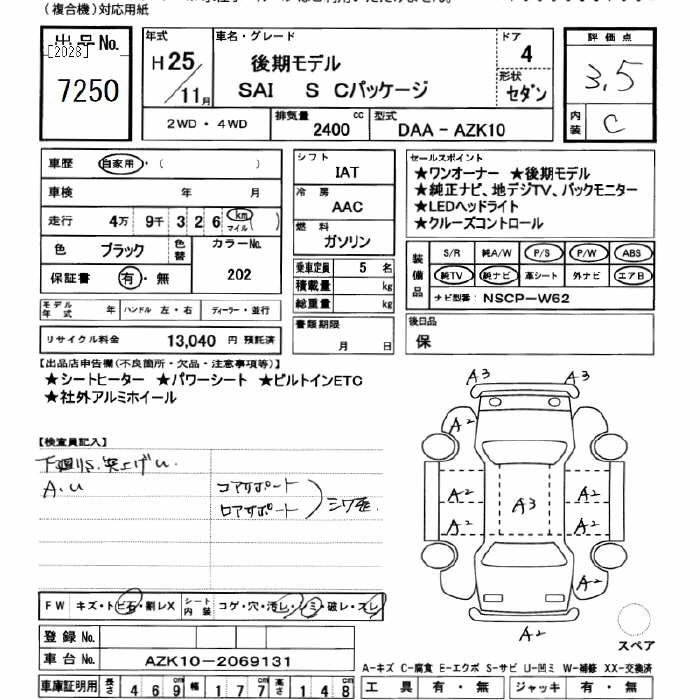 (複合機)対応用紙
出品No.
[2028]
7250
年式
H25/11月
車名・グレード
後期モデル
SAI S Cパッケージ
ドア
4
形状
セダン
評価点
3.5
内装
C
2WD・4WD
排気量 2400 cc
型式 DAA-AZK10
車歴 自家用・( )
車検 年 月
走行 4万 9千 3 2 6 km マイル ( )
色 ブラック 色替 カラーNo.
202
保証書 有・無
モデル年式 年 ハンドル 左・右 ディーラー・並行
リサイクル料金 13,040 円 預託済
シフト
IAT
冷房
AAC
燃料
ガソリン
乗車定員 5 名
積載量 kg
総重量 kg
書類期限
月 日
セールスポイント
★ワンオーナー ★後期モデル
★純正ナビ、地デジTV、バックモニター
★LEDヘッドライト
★クルーズコントロール
装備品
S/R 純A/W P/S P/W ABS
純TV 純ナビ 革シート 外ナビ エアB
ナビ型番: NSCP-W62
後日品
保
【出品店申告欄(不良箇所・欠品・注意事項等)】
★シートヒーター ★パワーシート ★ビルトインETC
★社外アルミホイール
【検査員記入】
下廻りS. 突上げU.
A.U
コアサポート
ロアサポート
A3 A3
A2 A2
A2 A2
A3
A2 A2
A2 A2
A2
スペア
FW キズ・トビ石・割レX シート内装 コゲ・穴・汚レ・シミ・破レ・スレ
登録No.
車台No. AZK10-2069131
車庫証明用 長さ 4 6 9 cm 幅 1 7 7 cm 高さ 1 4 8 cm
A-キズ C-腐食 E-エクボ S-サビ U-凹ミ W-補修 XX-交換済
工具 有・無 ジャッキ 有・無